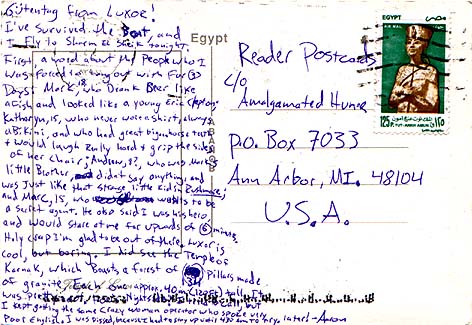 Greetings from Luxor!
I've survived the Boat, and
I fly to Sharm El Sheik tonight.
First a word about the People who I
was forced hanging out with For (3)
Days: Mark, 18, who Drank Beer like
a fish and looked like a young Eric Clapton;
Kathoryn, 15, who never wore a shirt, always
a Bikini, and who had great big horse teeth
& would laugh really hard & grip the sides
of her chair; Andrew, 8?, who was Mark's
little Brother, didn't say anything, and
was Just like that strange little kid in Rushmore;
and Marc, 15, who wants to be
a secret agent. He also said I was his hero,
and would stare at me for upwards of (6) minutes.
Holy crap I'm glad to be out of there. Luxor is
cool, but boring. I did see the Temple of
Karnak, which Boasts a forest of 134 Pillars made
of granite, Each one approx. 40m (120ft) tall. It
was
I kept getting the same crazy woman operator who spoke very
Poor English. I was pissed, because I had to stay up until 4:30 am to try. later! - Aaron
Egypt
Reader Postcards
c/o
Amalgamated Humor
P.O. Box 7033
Ann Arbor, MI. 48104
U.S.A.
EGYPT مصر
AIR MAIL
125 P.
١٢٥